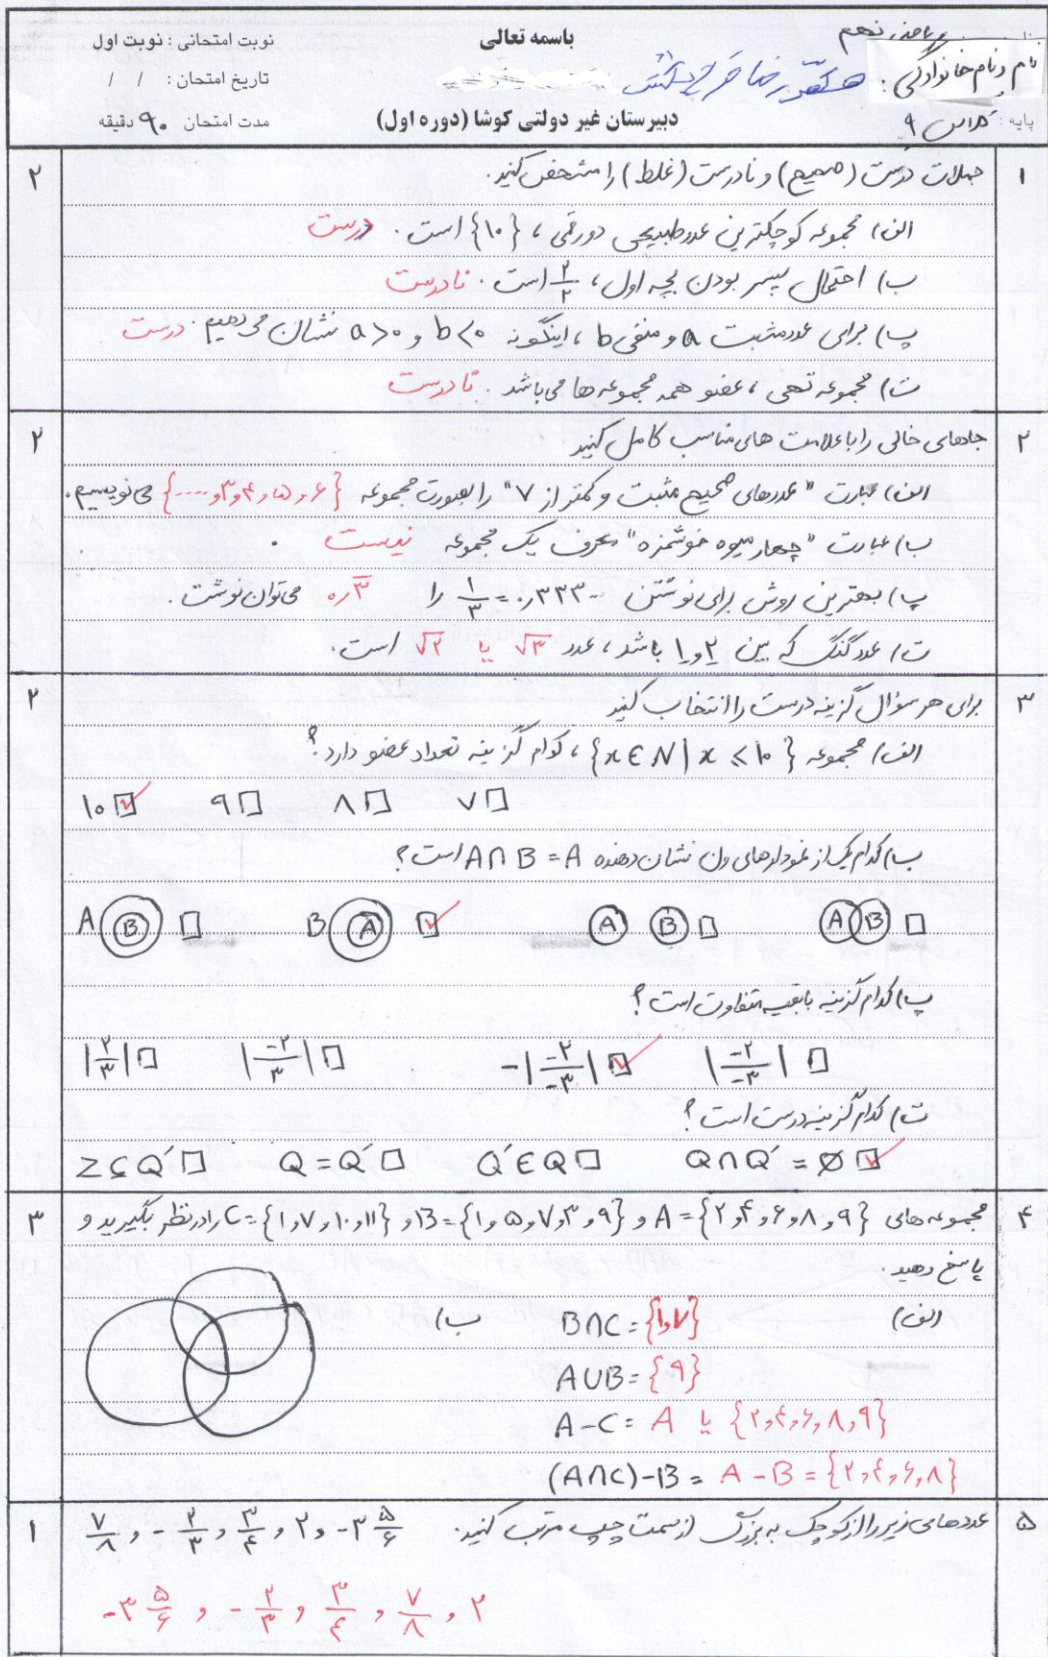 ریاضی نهم
باسمه تعالی
نوبت امتحانی : نوبت اول
نام و نام خانوادگی :
تاریخ امتحان : / /
پایه : کلاس ۹
دبیرستان غیر دولتی کوشا (دوره اول)
مدت امتحان ۹۰ دقیقه
۱ جملات درست (صحیح) و نادرست (غلط) را مشخص کنید. ۲
الف) مجموعه کوچکترین عدد طبیعی دو رقمی ، {۱۰} است . درست
ب) احتمال پسر بودن بچه اول ، ۲/۲ است . نادرست
پ) برای عدد مثبت a و منفی b ، اینگونه b<۰ و a>۰ نشان می دهیم . درست
ت) مجموعه تهی ، عضو همه مجموعه ها می باشد . نادرست
۲ جاهای خالی را با علامت های مناسب کامل کنید ۲
الف) عبارت "عددهای صحیح مثبت و کمتر از ۷" را بصورت مجموعه {۶و۵و۴و۳و....} می نویسیم.
ب) عبارت "چهار میوه خوشمزه" معرف یک مجموعه نیست .
پ) بهترین روش برای نوشتن ۱/۳ = ۰٫۳۳۳۰۰ را ۰٫۳̅ می توان نوشت .
ت) عدد گنگ که بین ۲ و ۱ باشد ، عدد √۳ یا √۲ است.
۳ برای هر سؤال گزینه درست را انتخاب کنید ۲
الف) مجموعه {x∈N | x ≤ ۱۰} ، کدام گزینه تعداد عضو دارد ؟
۱۰ ☑ ۹ □ ۸ □ ۷ □
ب) کدام یک از نمودارهای ون نشان دهنده A∩B = A است ؟
A B □ B A ☑ A B □ A B □
پ) کدام گزینه با بقیه متفاوت است ؟
|۲/۳| □ |-۲/۳| □ -|-۲/-۳| ☑ |-۲/-۳| □
ت) کدام گزینه درست است ؟
Z⊆Q′ □ Q=Q′ □ Q′∈Q □ Q∩Q′=∅ ☑
۴ مجموعه های A={۲و۴و۶و۸و۹} و B={۱و۵و۷و۳و۹} و C={۱و۷و۱۰و۱۱} را در نظر بگیرید و ۳
پاسخ دهید .
الف) B∩C = {۱و۷} ب)
A∪B = {۹}
A-C = A یا {۲و۴و۶و۸و۹}
(A∩C)-B = A-B = {۲و۴و۶و۸}
۵ عددهای زیر را از کوچک به بزرگ از سمت چپ مرتب کنید. ۷/۸ و -۲/۳ و ۳/۴ و ۲ و -۳ ۵/۶ ۱
-۳ ۵/۶ و -۲/۳ و ۳/۴ و ۷/۸ و ۲